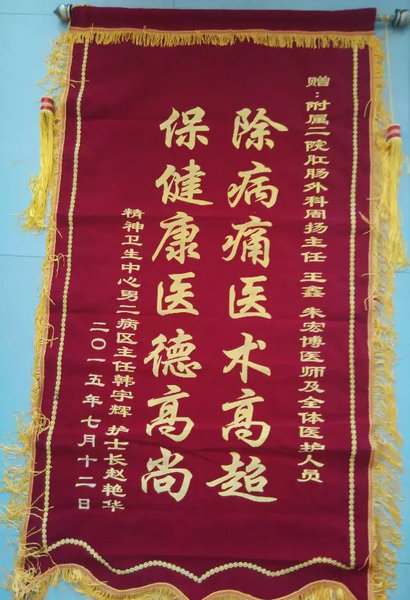 赠：附属二院肛肠外科周扬主任 王鑫 朱宏博医师及全体医护人员
除病痛医术高超
保健康医德高尚
精神卫生中心男二病区主任韩宇辉 护士长赵艳华
二〇一五年七月十二日